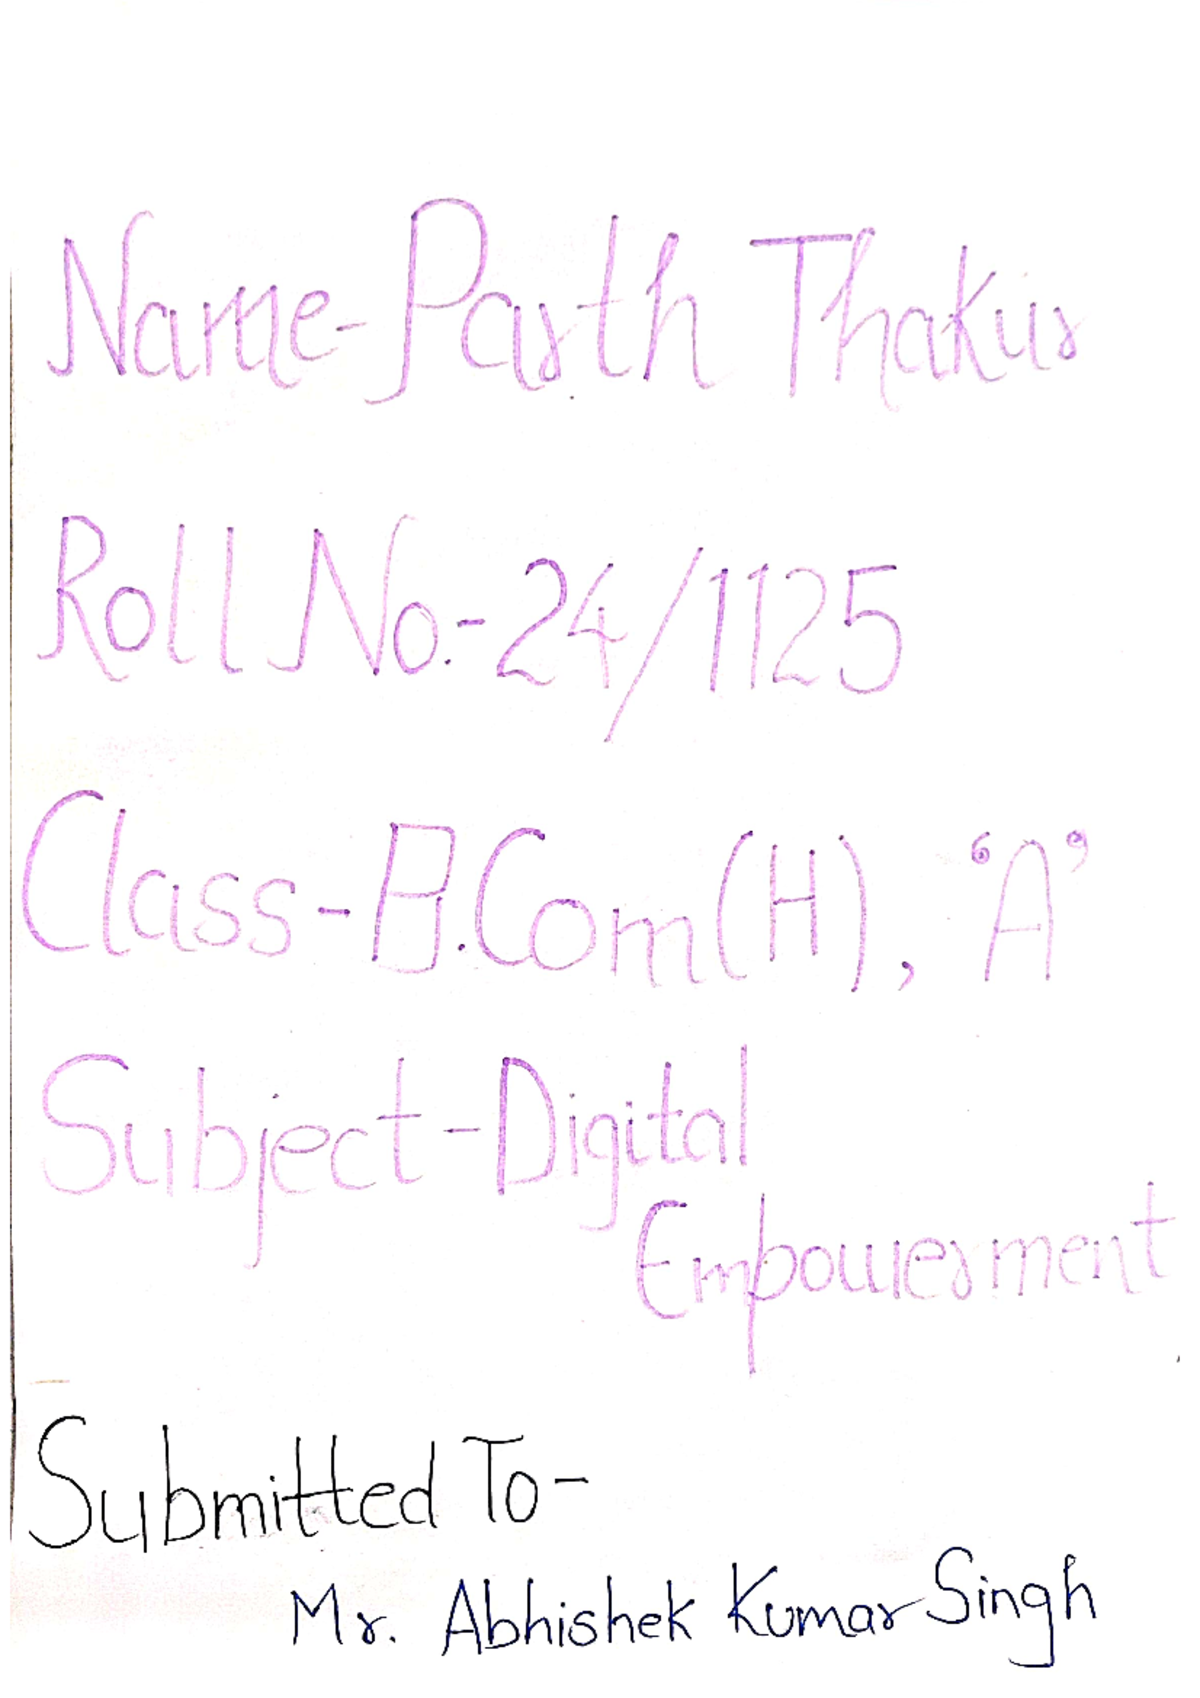 Name-Parth Thakur
Roll No.-24/1125
Class-B.Com(H), 'A'
Subject-Digital
Empowerment
Submitted To-
Mr. Abhishek Kumar Singh